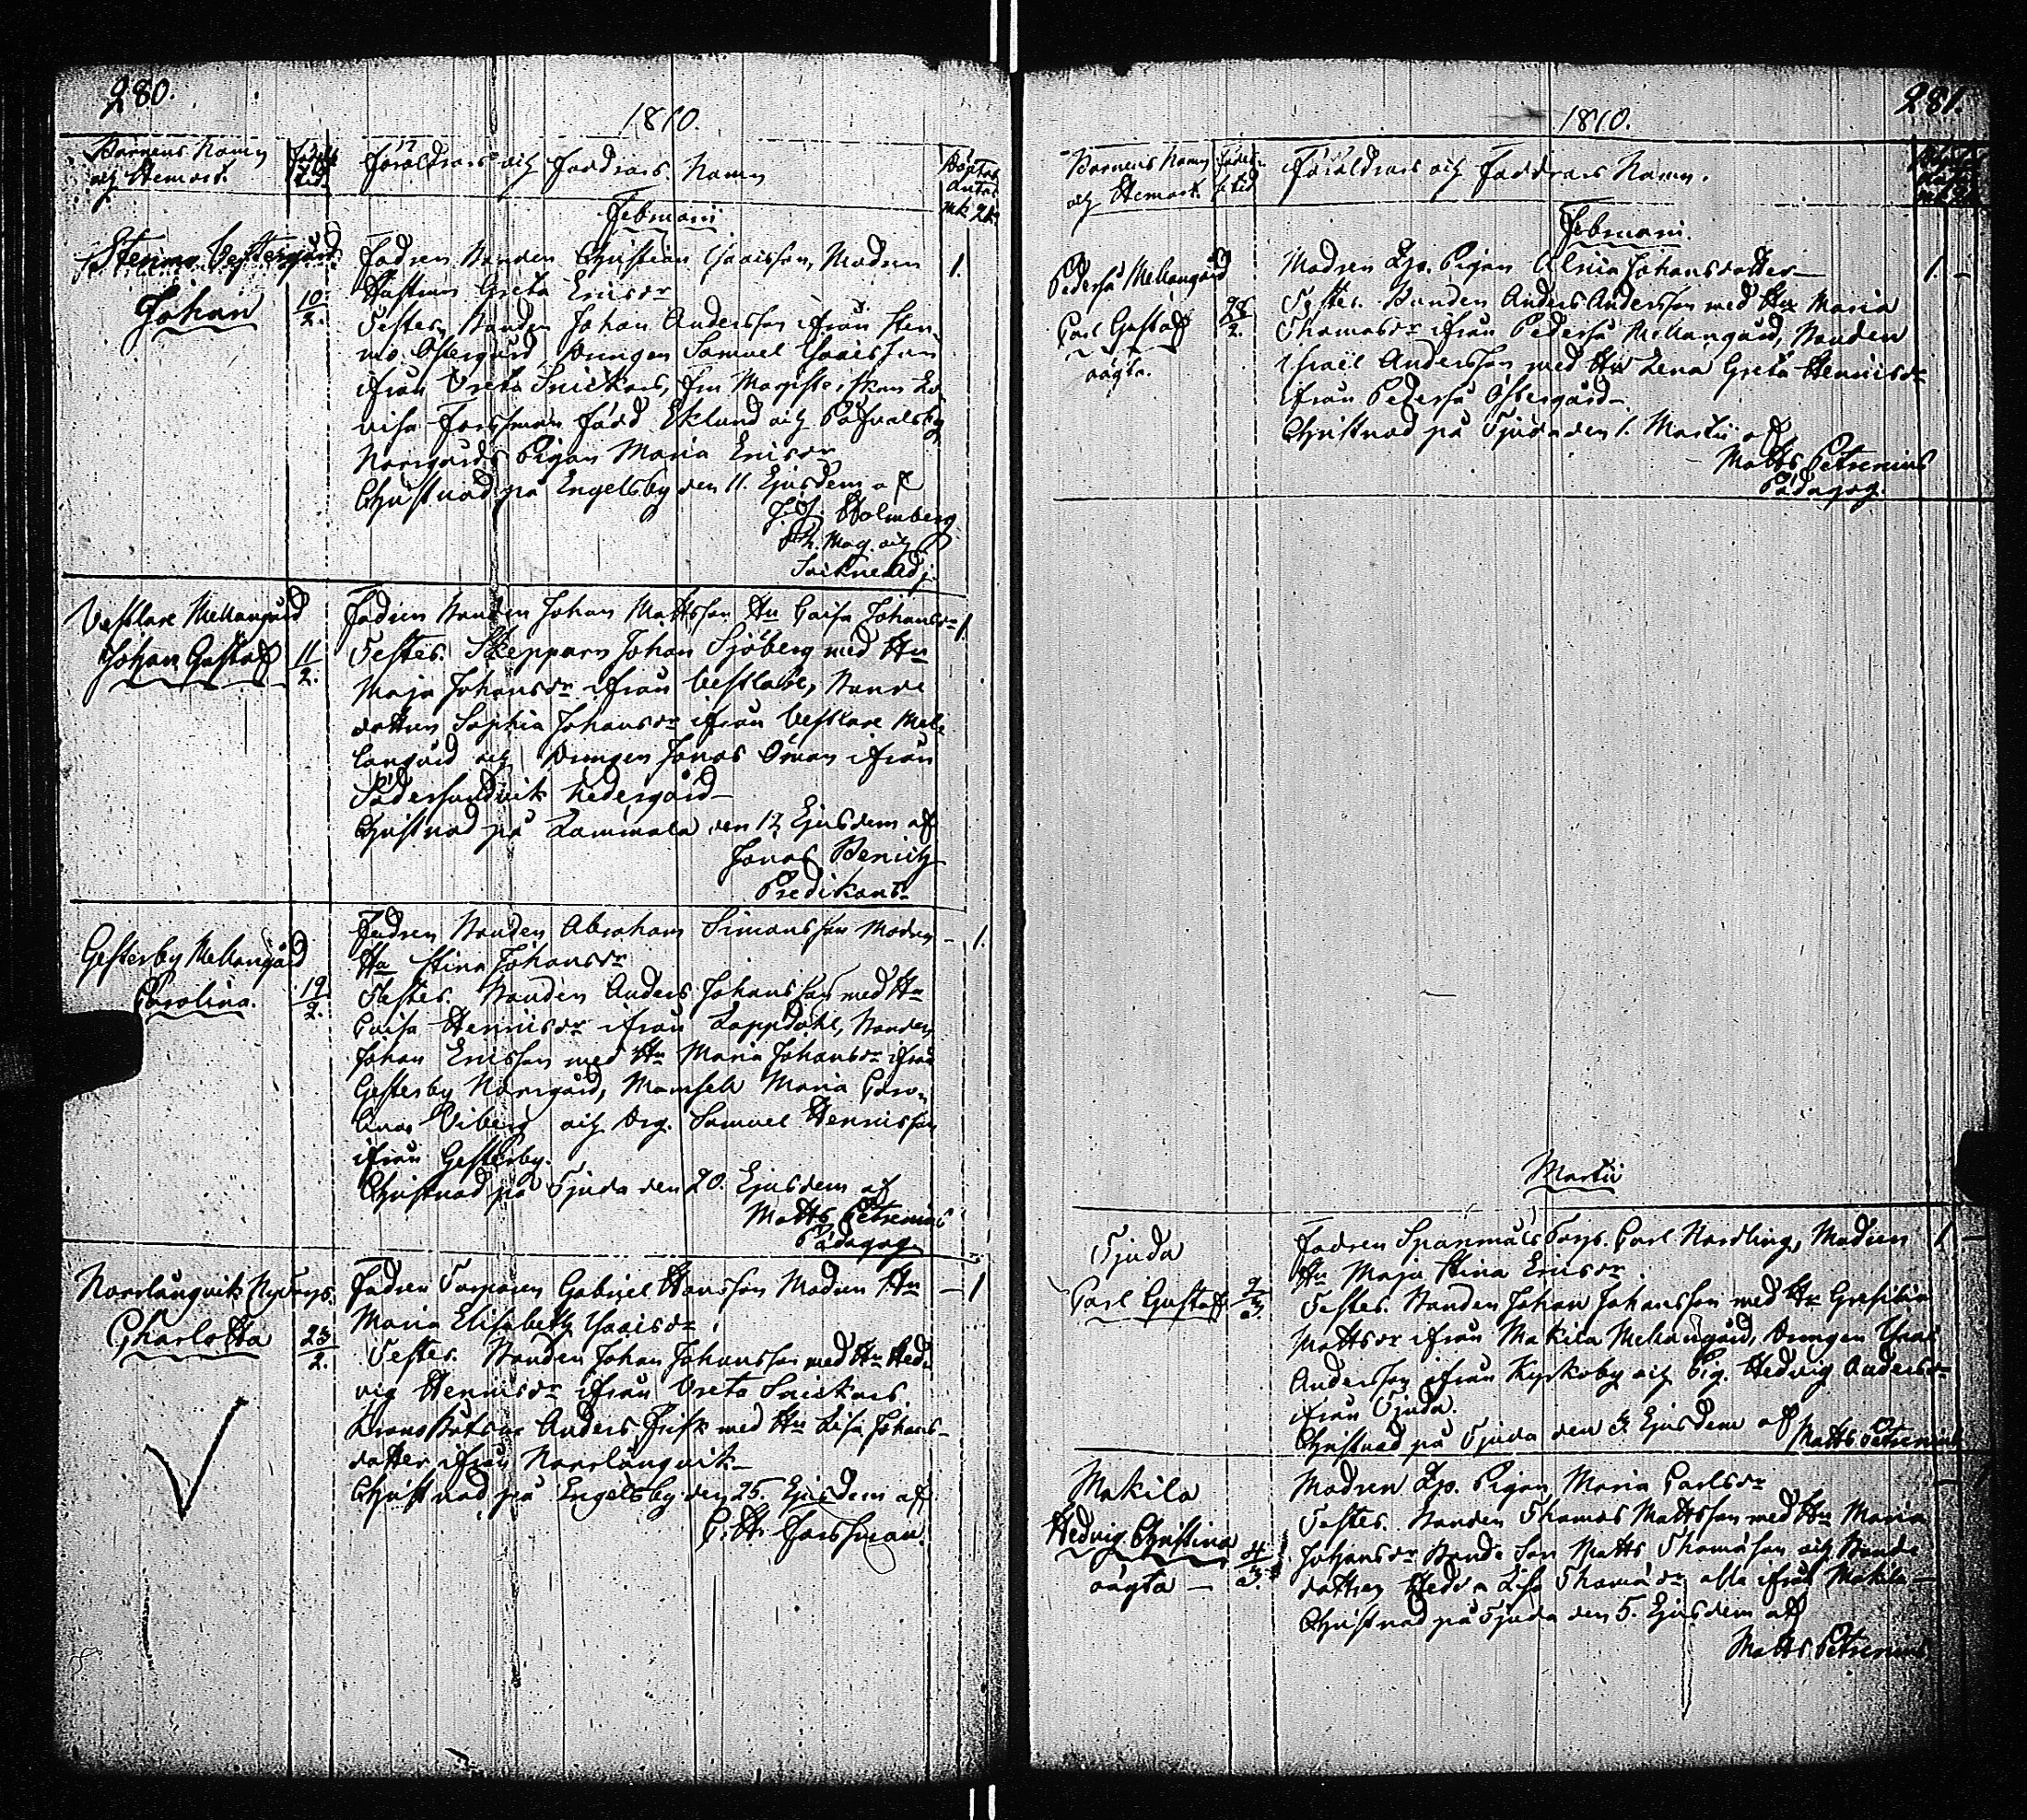 280.
1810.
Barnens Namn
och Hemort.
Födelse
tid.
Föräldrars och Faddrars Namn
Böntas
antal
mk. qk.
Februarii
Stenmo Vestergård
Johan
10/2.
Fadren Bonden Christian Isaacsson, Modren
Hustrun Greta Ericsdr
1.
Testes, Bonden Johan Andersson ifrån Sten
mo Östergård, Drängen Samuel Isaacsson
ifrån Vreta Snickars, Fru Magisterskan Lo
visa Forssman född Eklund och Påfvalsby
Norrgårds Pigan Maria Ericsdr
Christnad på Engelsby den 11. Ejusdem af
J. J. Holmberg
Ph. Mag. och
Sockne Adj.
Vestlare Mellangård
Johan Gustaf
11/2.
Fadren Bonden Johan Mattsson Hu Caisa Johansdr
1.
Testes. Skepparn Johan Sjöberg med Hu
Maja Johansdr ifrån Vestlare, Bonde
dottren Sophia Johansdr ifrån Vestlare Mel
langård och Drängen Jonas Öman ifrån
Södersundvik Nedergård
Christnad på Lammala den 12 Ejusdem af
Jonas Benich
Predikant
Gesterby Mellangård
Carolina.
19/2.
Fadren Bonden Abraham Simonsson Modren
Hu Stina Johansdr
1.
Testes. Bonden Anders Johansson med Hu
Caisa Henricsdr ifrån Lappdahl, Bonden
Johan Ericsson med Hu Maria Johansdr ifrån
Gesterby Norrgård, Mamsell Maria Caro
lina Viberg och Drg. Samuel Henricsson
ifrån Gesterby.
Christnad på Tjuda den 20. Ejusdem af
Matts Petrenius
Pädagog
Norrlångvik Nytorp.
Charlotta
23/2.
Fadren Torparen Gabriel Hansson Modren Hu
Maria Elisabeth Isaacsdr
1
Testes. Bonden Johan Johansson med Hu Hed
vig Henricsdr ifrån Vreta Snickars
Krono Båtsm Anders Frisk med Hu Lisa Johans
dotter ifrån Norrlångvik
Christnad på Engelsby den 25. Ejusdem af
C. H. Forssman.
281.
1810.
Barnens Namn
och Hemort.
Födel
se tid
Föräldrars och Faddrars Namn.
Februarii.
Pederså Mellangård
Carl Gustaf
oägta.
28/2.
Modren Lps. Pigan Ulrica Johansdotter
1.
Testes. Bonden Anders Andersson med Hu Maria
Thomasdr ifrån Pederså Mellangård, Bonden
Israel Andersson med Hu Lena Greta Henricsdr
ifrån Pederså Östergård
Christnad på Tjuda den 1. Martii af
Matts Petrenius
Pädagog.
Martii
Tjuda
Carl Gustaf
2/3.
Fadren Spanmåls Torp. Carl Nordling, Modren
Hu Maja Stina Ericsdr
1
Testes. Bonden Johan Johansson med Hu Gresilia
Mattsdr ifrån Makila Mellangård, Drängen Isaac
Andersson ifrån Kyrkoby och Pig. Hedvig Andersdr
ifrån Tjuda.
Christnad på Tjuda den 3 Ejusdem af Matts Petrenius
Makila
Hedvig Christina
oägta
4/3.
Modren Lps. Pigan Maria Carlsdr
Testes. Bonden Thomas Mattsson med Hu Maria
Johansdr Bonde Son Matts Thomasson och Bonde
dottren Hedda Lisa Thomasdr alla ifrån Makila
Christnad på Tjuda den 5. Ejusdem af
Matts Petrenius